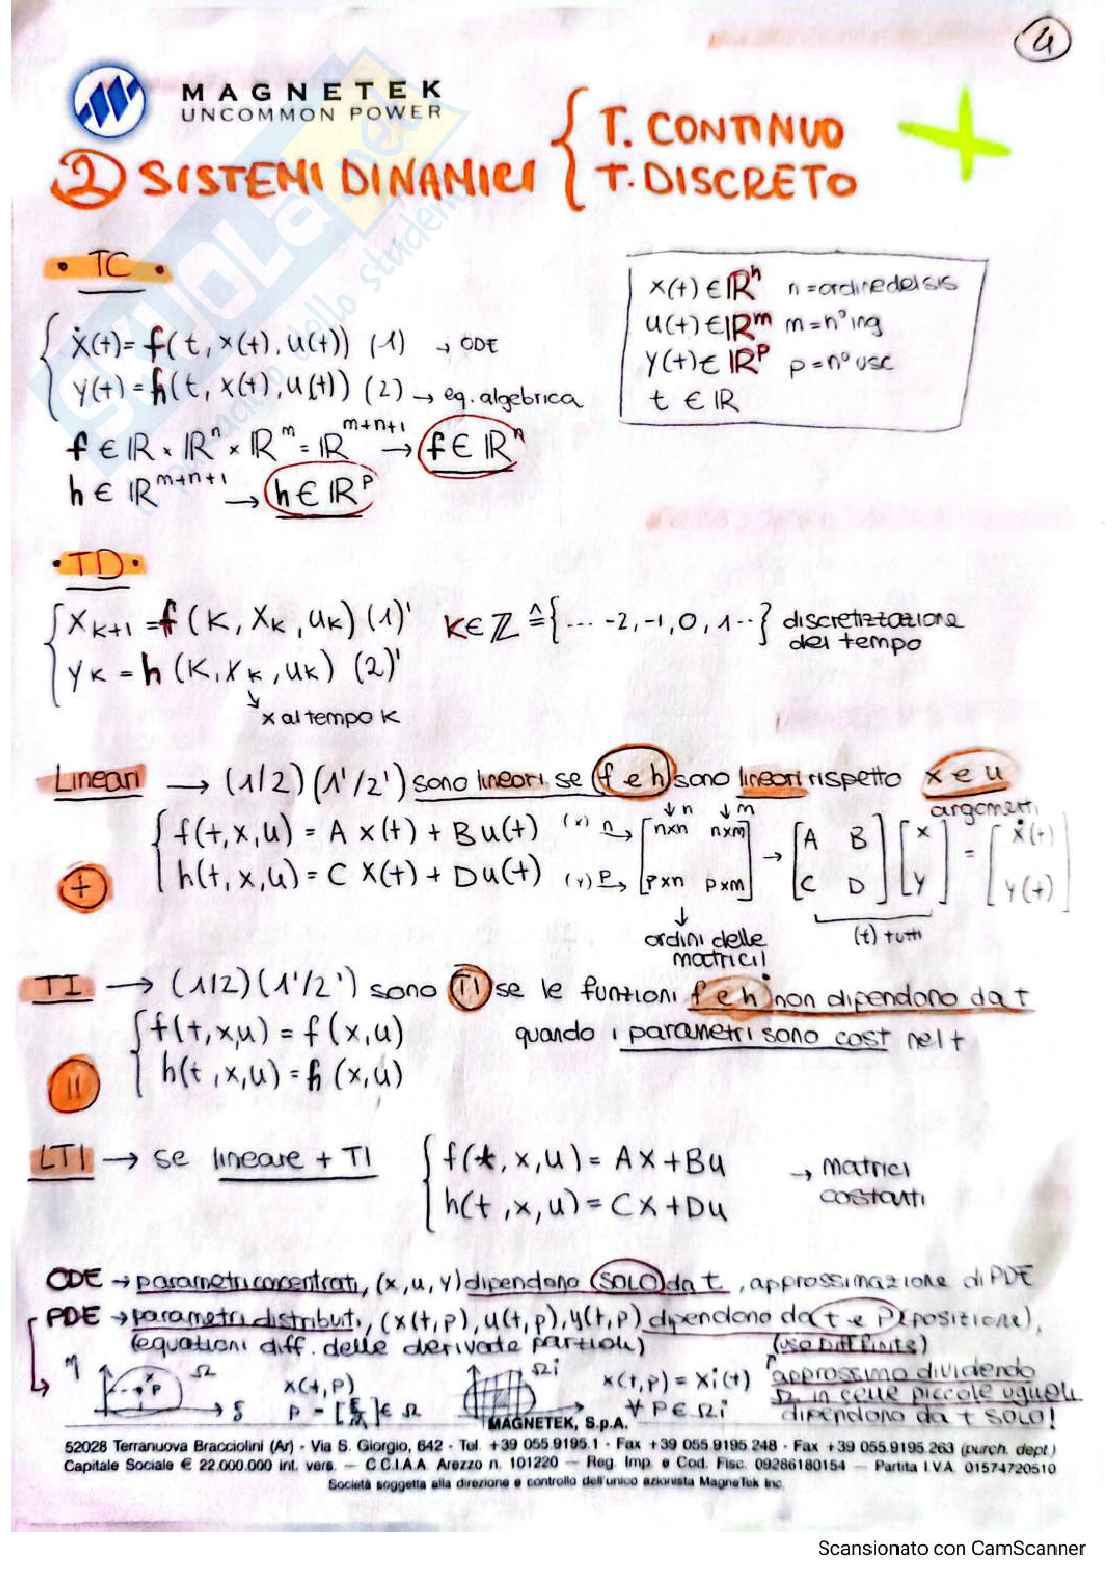 4
MAGNETEK
UNCOMMON POWER
② SISTEMI DINAMICI { T. CONTINUO
T. DISCRETO
• TC •
x(t) ∈ ℝⁿ n = ordine del sis
u(t) ∈ ℝᵐ m = n° ing
y(t) ∈ ℝᵖ p = n° usc
t ∈ ℝ
ẋ(t) = f(t, x(t), u(t)) (1) → ODE
y(t) = h(t, x(t), u(t)) (2) → eq. algebrica
f ∈ ℝ × ℝⁿ × ℝᵐ = ℝᵐ⁺ⁿ⁺¹ → f ∈ ℝⁿ
h ∈ ℝᵐ⁺ⁿ⁺¹ → h ∈ ℝᵖ
• TD •
x_{k+1} = f(k, x_k, u_k) (1)' k ∈ ℤ ≙ {... -2, -1, 0, 1 ..} discretizzazione
del tempo
y_k = h(k, x_k, u_k) (2)'
↘ x al tempo k
Lineari → (1/2) (1'/2') sono lineari se f e h sono lineari rispetto x e u
argomenti
f(t, x, u) = A x(t) + B u(t) (x) n → [n×n n×m ↓n ↓m
h(t, x, u) = C x(t) + D u(t) (y) p → p×n p×m] → [A B C D] [x y] = [ẋ(t) y(t)]
+
↓ ordini delle matrici!
(t) tutti
TI → (1/2) (1'/2') sono TI se le funzioni f e h non dipendono da t
f(t, x, u) = f(x, u) quando i parametri sono cost nel t
h(t, x, u) = h(x, u)
=
LTI → se lineare + TI { f(t, x, u) = Ax + Bu → matrici
h(t, x, u) = Cx + Du costanti
ODE → parametri concentrati, (x, u, y) dipendono SOLO da t, approssimazione di PDE
PDE → parametri distribuiti, (x(t,p), u(t,p), y(t,p) dipendono da t e P(posizione),
(equazioni diff. delle derivate parziali)
η Ω P ξ x(t,p) Ωi x(t,p) = xi(t) approssimo dividendo
p = [ξ η] ∈ Ω ∀ P ∈ Ωi Ω in celle piccole uguali
dipendono da t SOLO!
MAGNETEK, S.p.A.
52028 Terranuova Bracciolini (Ar) - Via S. Giorgio, 642 - Tel. +39 055.9195.1 - Fax +39 055.9195.248 - Fax +39 055.9195.263 (purch. dept.)
Capitale Sociale € 22.000.000 int. vers. — C.C.I.A.A. Arezzo n. 101220 — Reg. Imp. e Cod. Fisc. 09286180154 — Partita I.V.A. 01574720510
Società soggetta alla direzione e controllo dell'unico azionista MagneTek Inc.
Scansionato con CamScanner